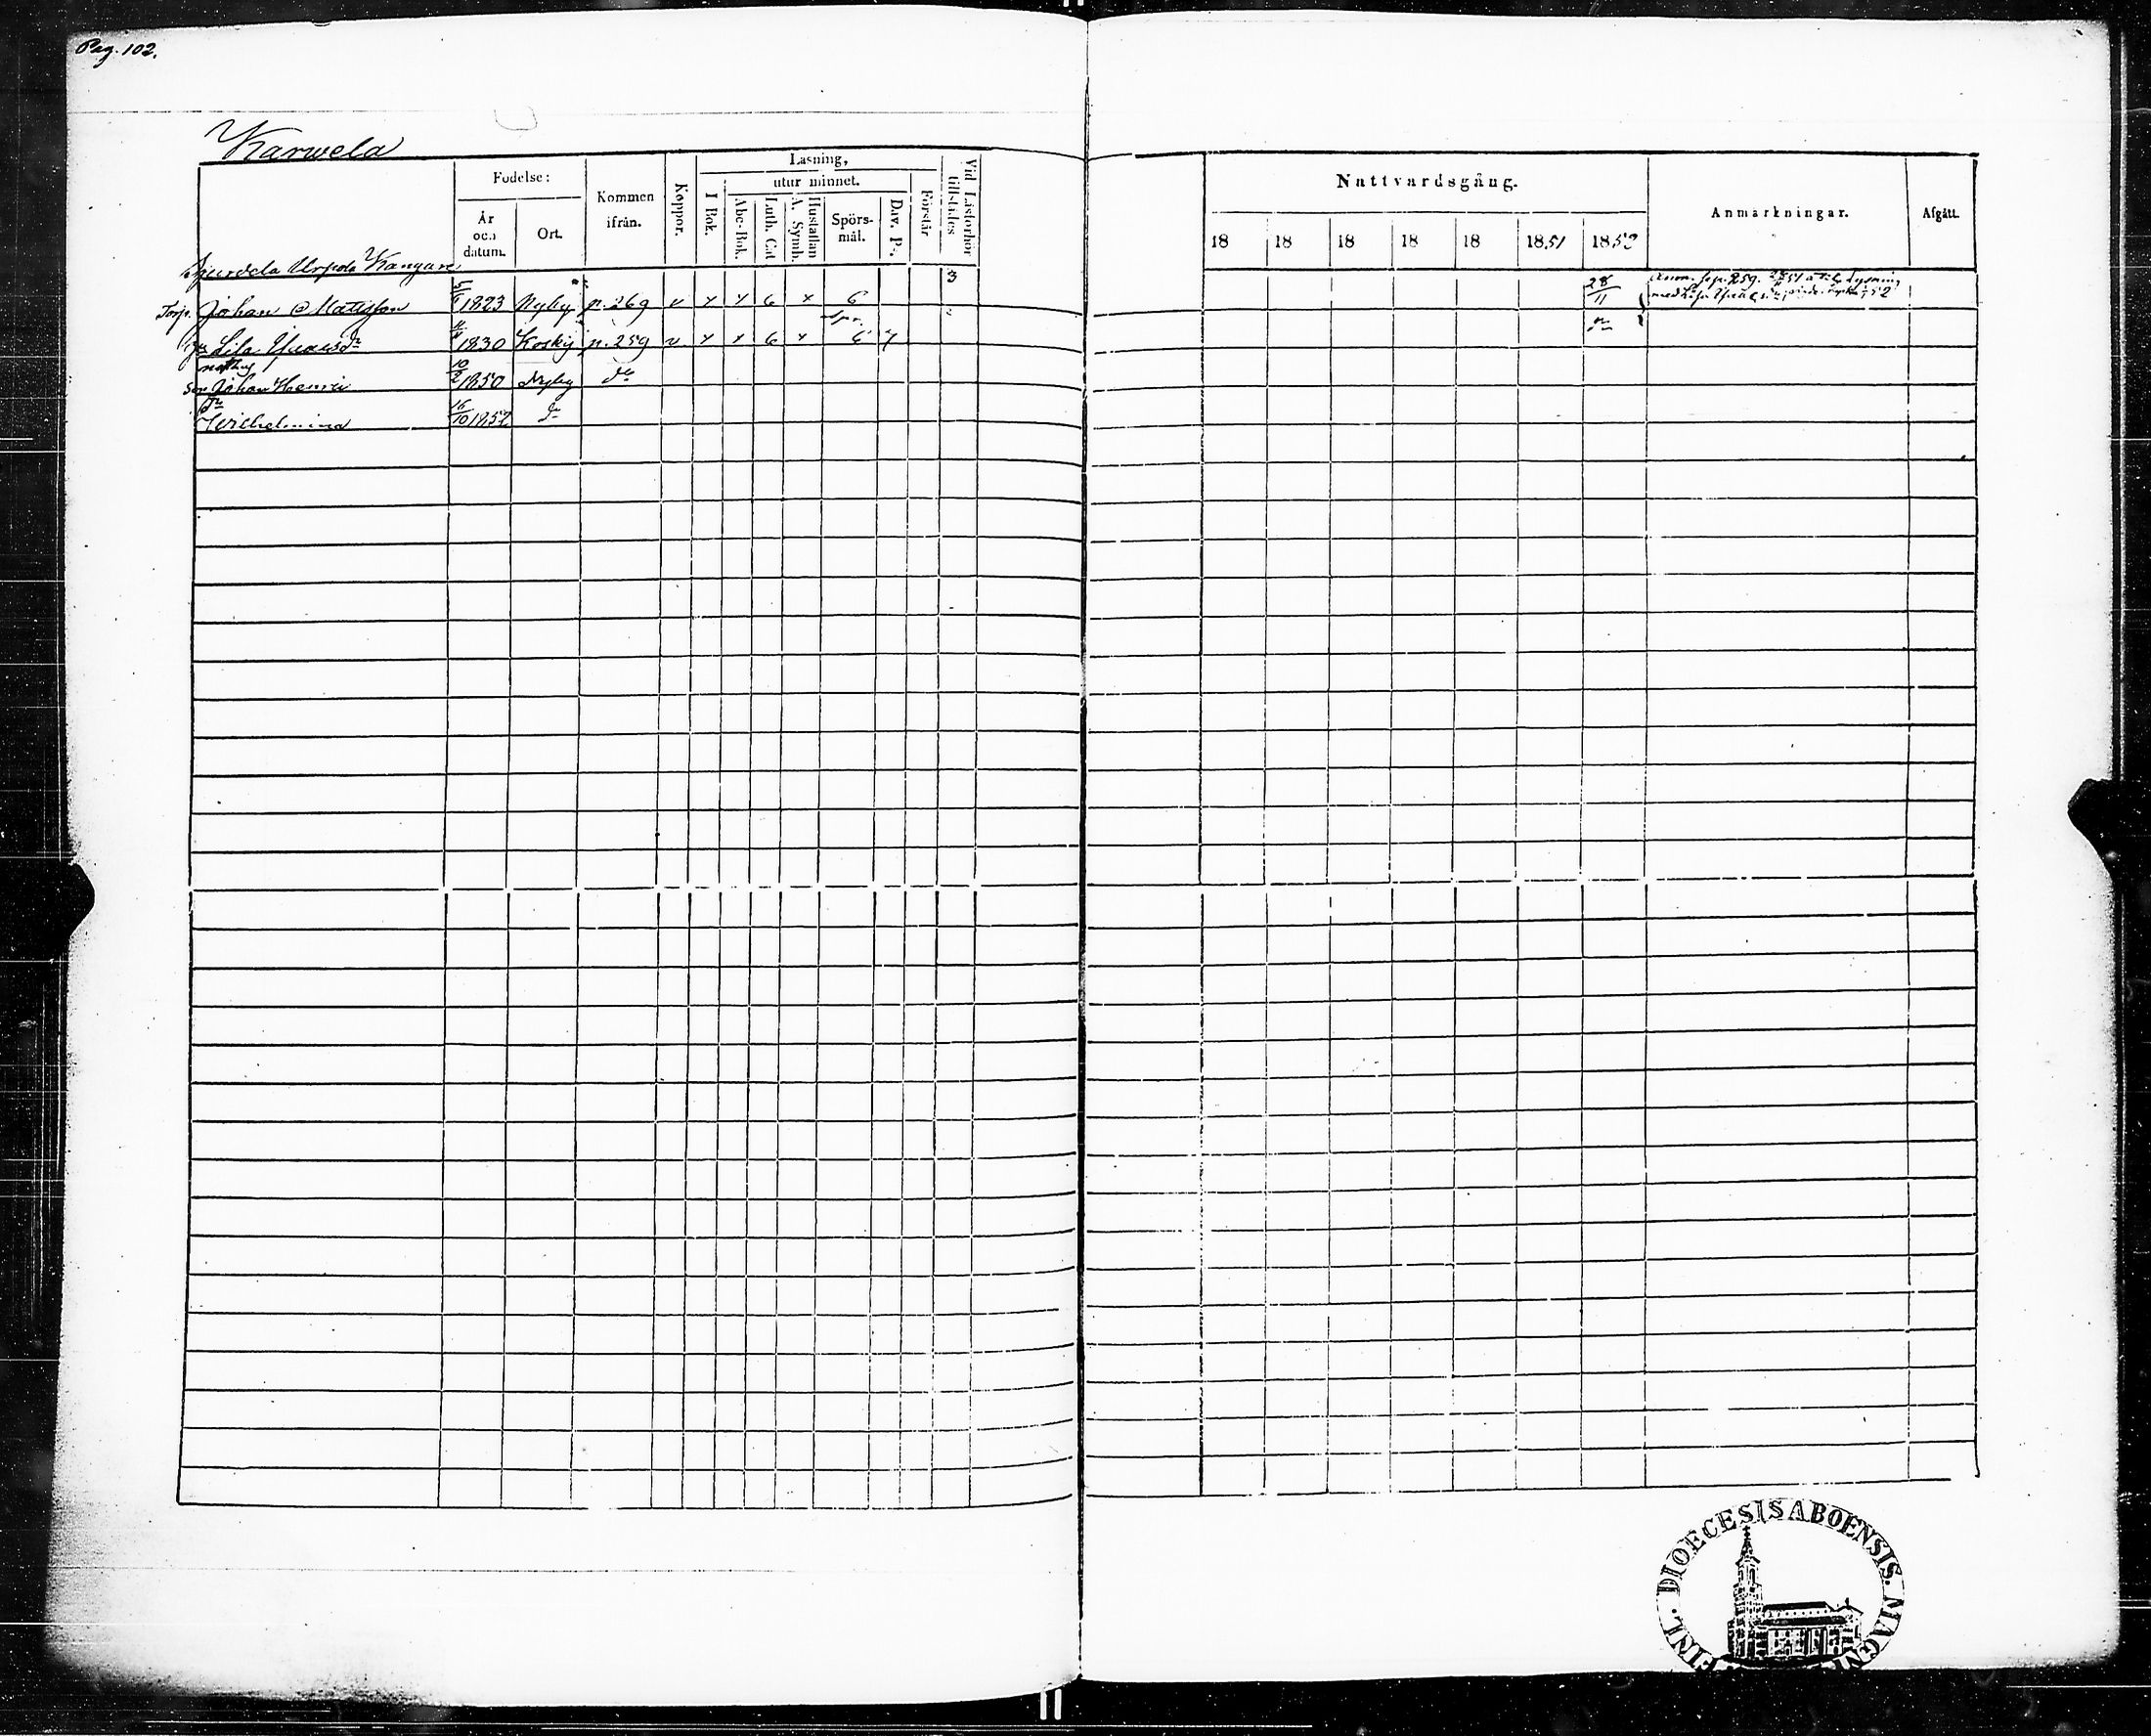 Pag. 102.
Karwela
Fodelse:
År och datum.
Ort.
Kommen ifrån.
Koppor.
Läsning,
I Bok.
utur minnet.
Abc-Bok.
Luth. Cat
Hustaflan A. Symb.
Spörs-mål.
Dav. Ps.
Förstår
Vid Läsförhör tillstädes
Nattvardsgång.
18 18 18 18 18 1851 1852
Anmärkningar.
Afgått.
Kangare 3
Torp. Johan Mattsson 1823 Nyby p. 269 v x x 6 x 6 28/11
1830 Koski p. 259 v x x 6 x 6 7 do
Son Johan Henric 10/2 1850 Nyby do
Dr
Wilhelmina 16/10 1852 do
DIOECESIS ABOENSIS. MAGNI